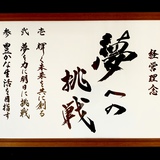 経営理念
夢への
挑戦
壱 輝く未来を共に創る
弐 夢を力に明日に挑戦
参 豊かな生活を目指す